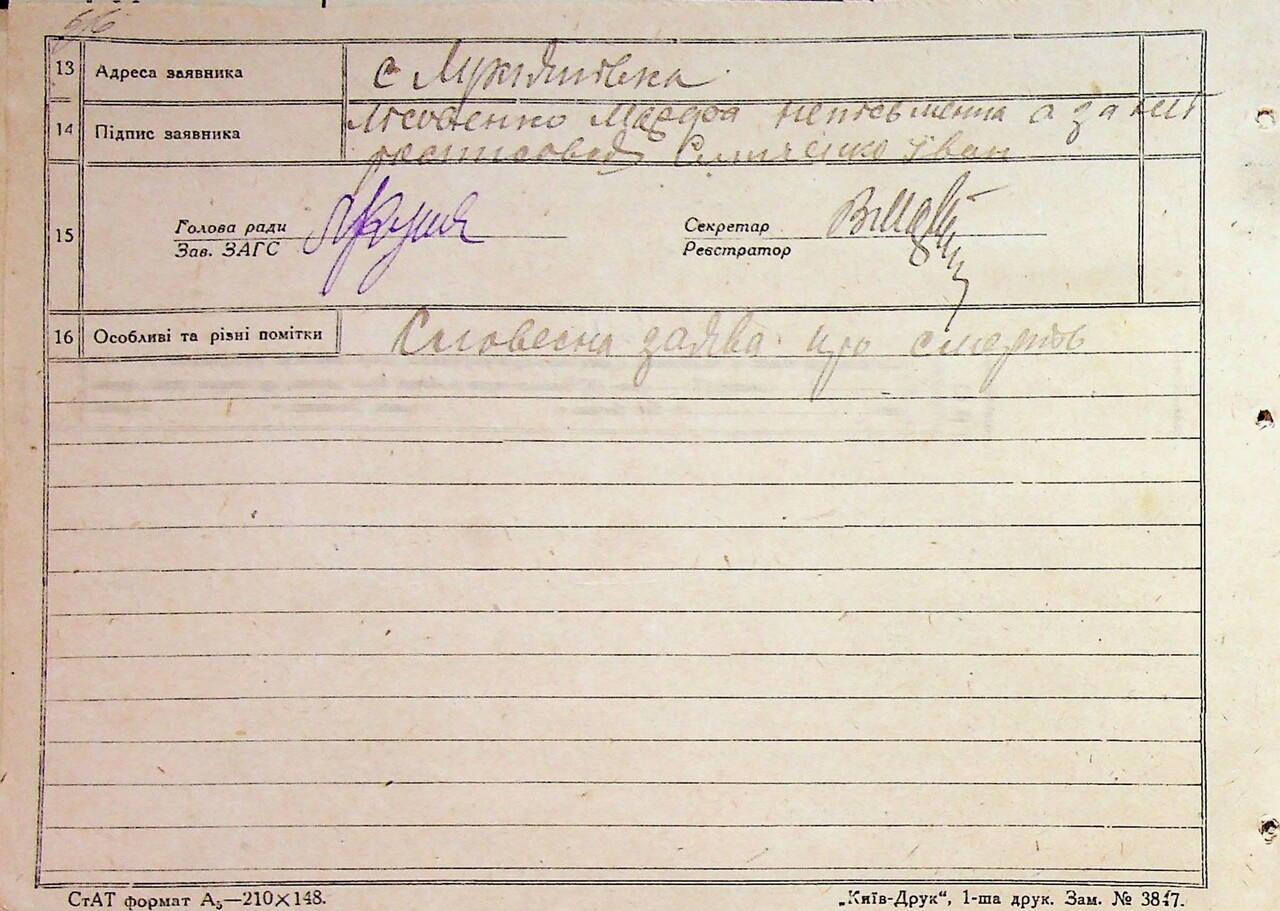 13 Адреса заявника с Лукяшівка
14 Підпис заявника Мардра неписьменна а за неї
росписовсь Іван
15 Голова ради Секретар
Зав. ЗАГС Реєстратор
16 Особливі та різні помітки Словесна заява про смерть
СтАТ формат А₅—210×148. „Київ-Друк“, 1-ша друк. Зам. № 3847.